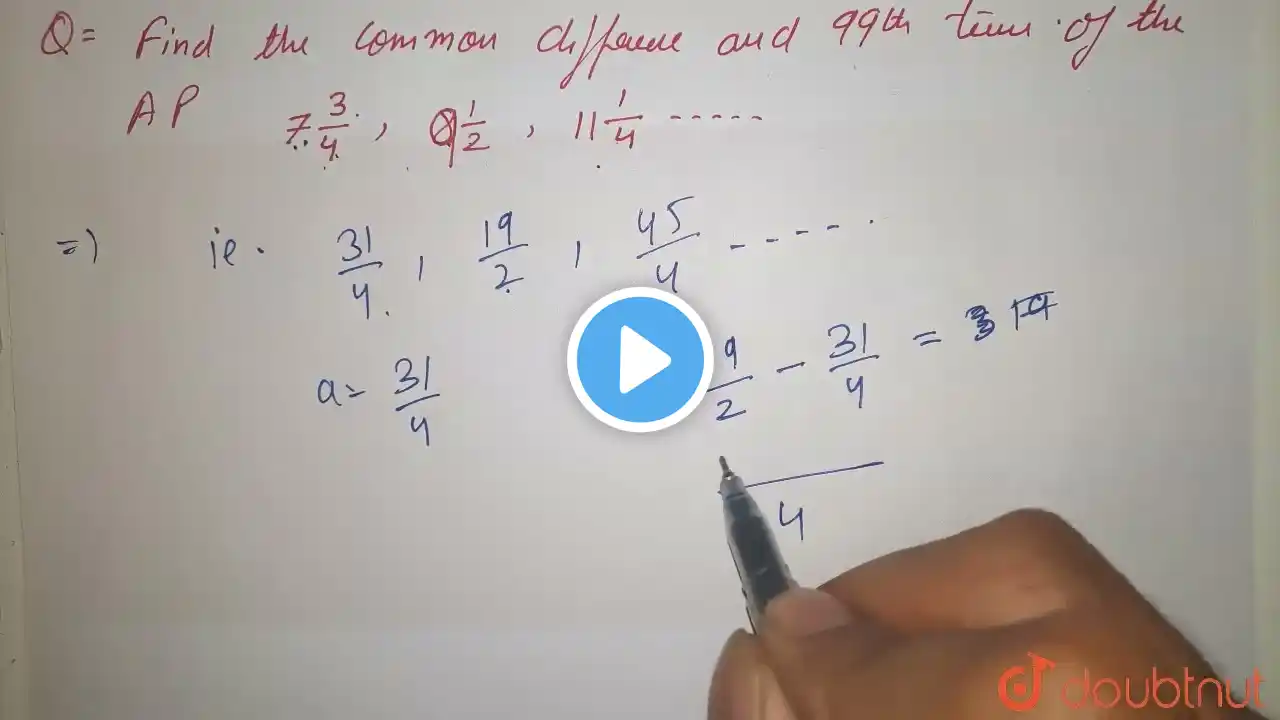 Q= Find the common difference and 99th term of the
AP 7 3/4 , 9 1/2 , 11 1/4 -----
=) ie. 31/4 , 19/2 , 45/4 ----- .
a= 31/4 9/2 - 31/4 =
4
doubtnut